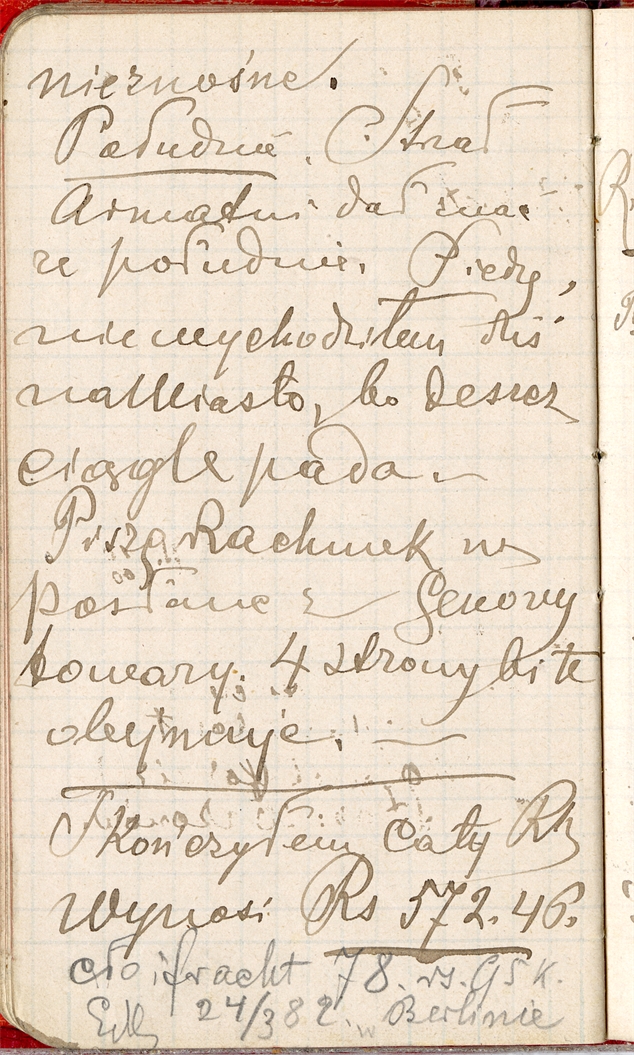 nieznośne.
Południe. Strzał
Armatni dał znać
że południe. Siedzę,
niewychodziłem dziś
na Miasto, bo deszcz
ciągle pada. —
Piszę Rachunek na
posłane z Genovy
towary. 4 strony bite
obejmuje. —
Skończyłem cały Rk
wynosi Rs 572.46.
cło i fracht 78. rs. 95 k.
24/3 82. w Berlinie